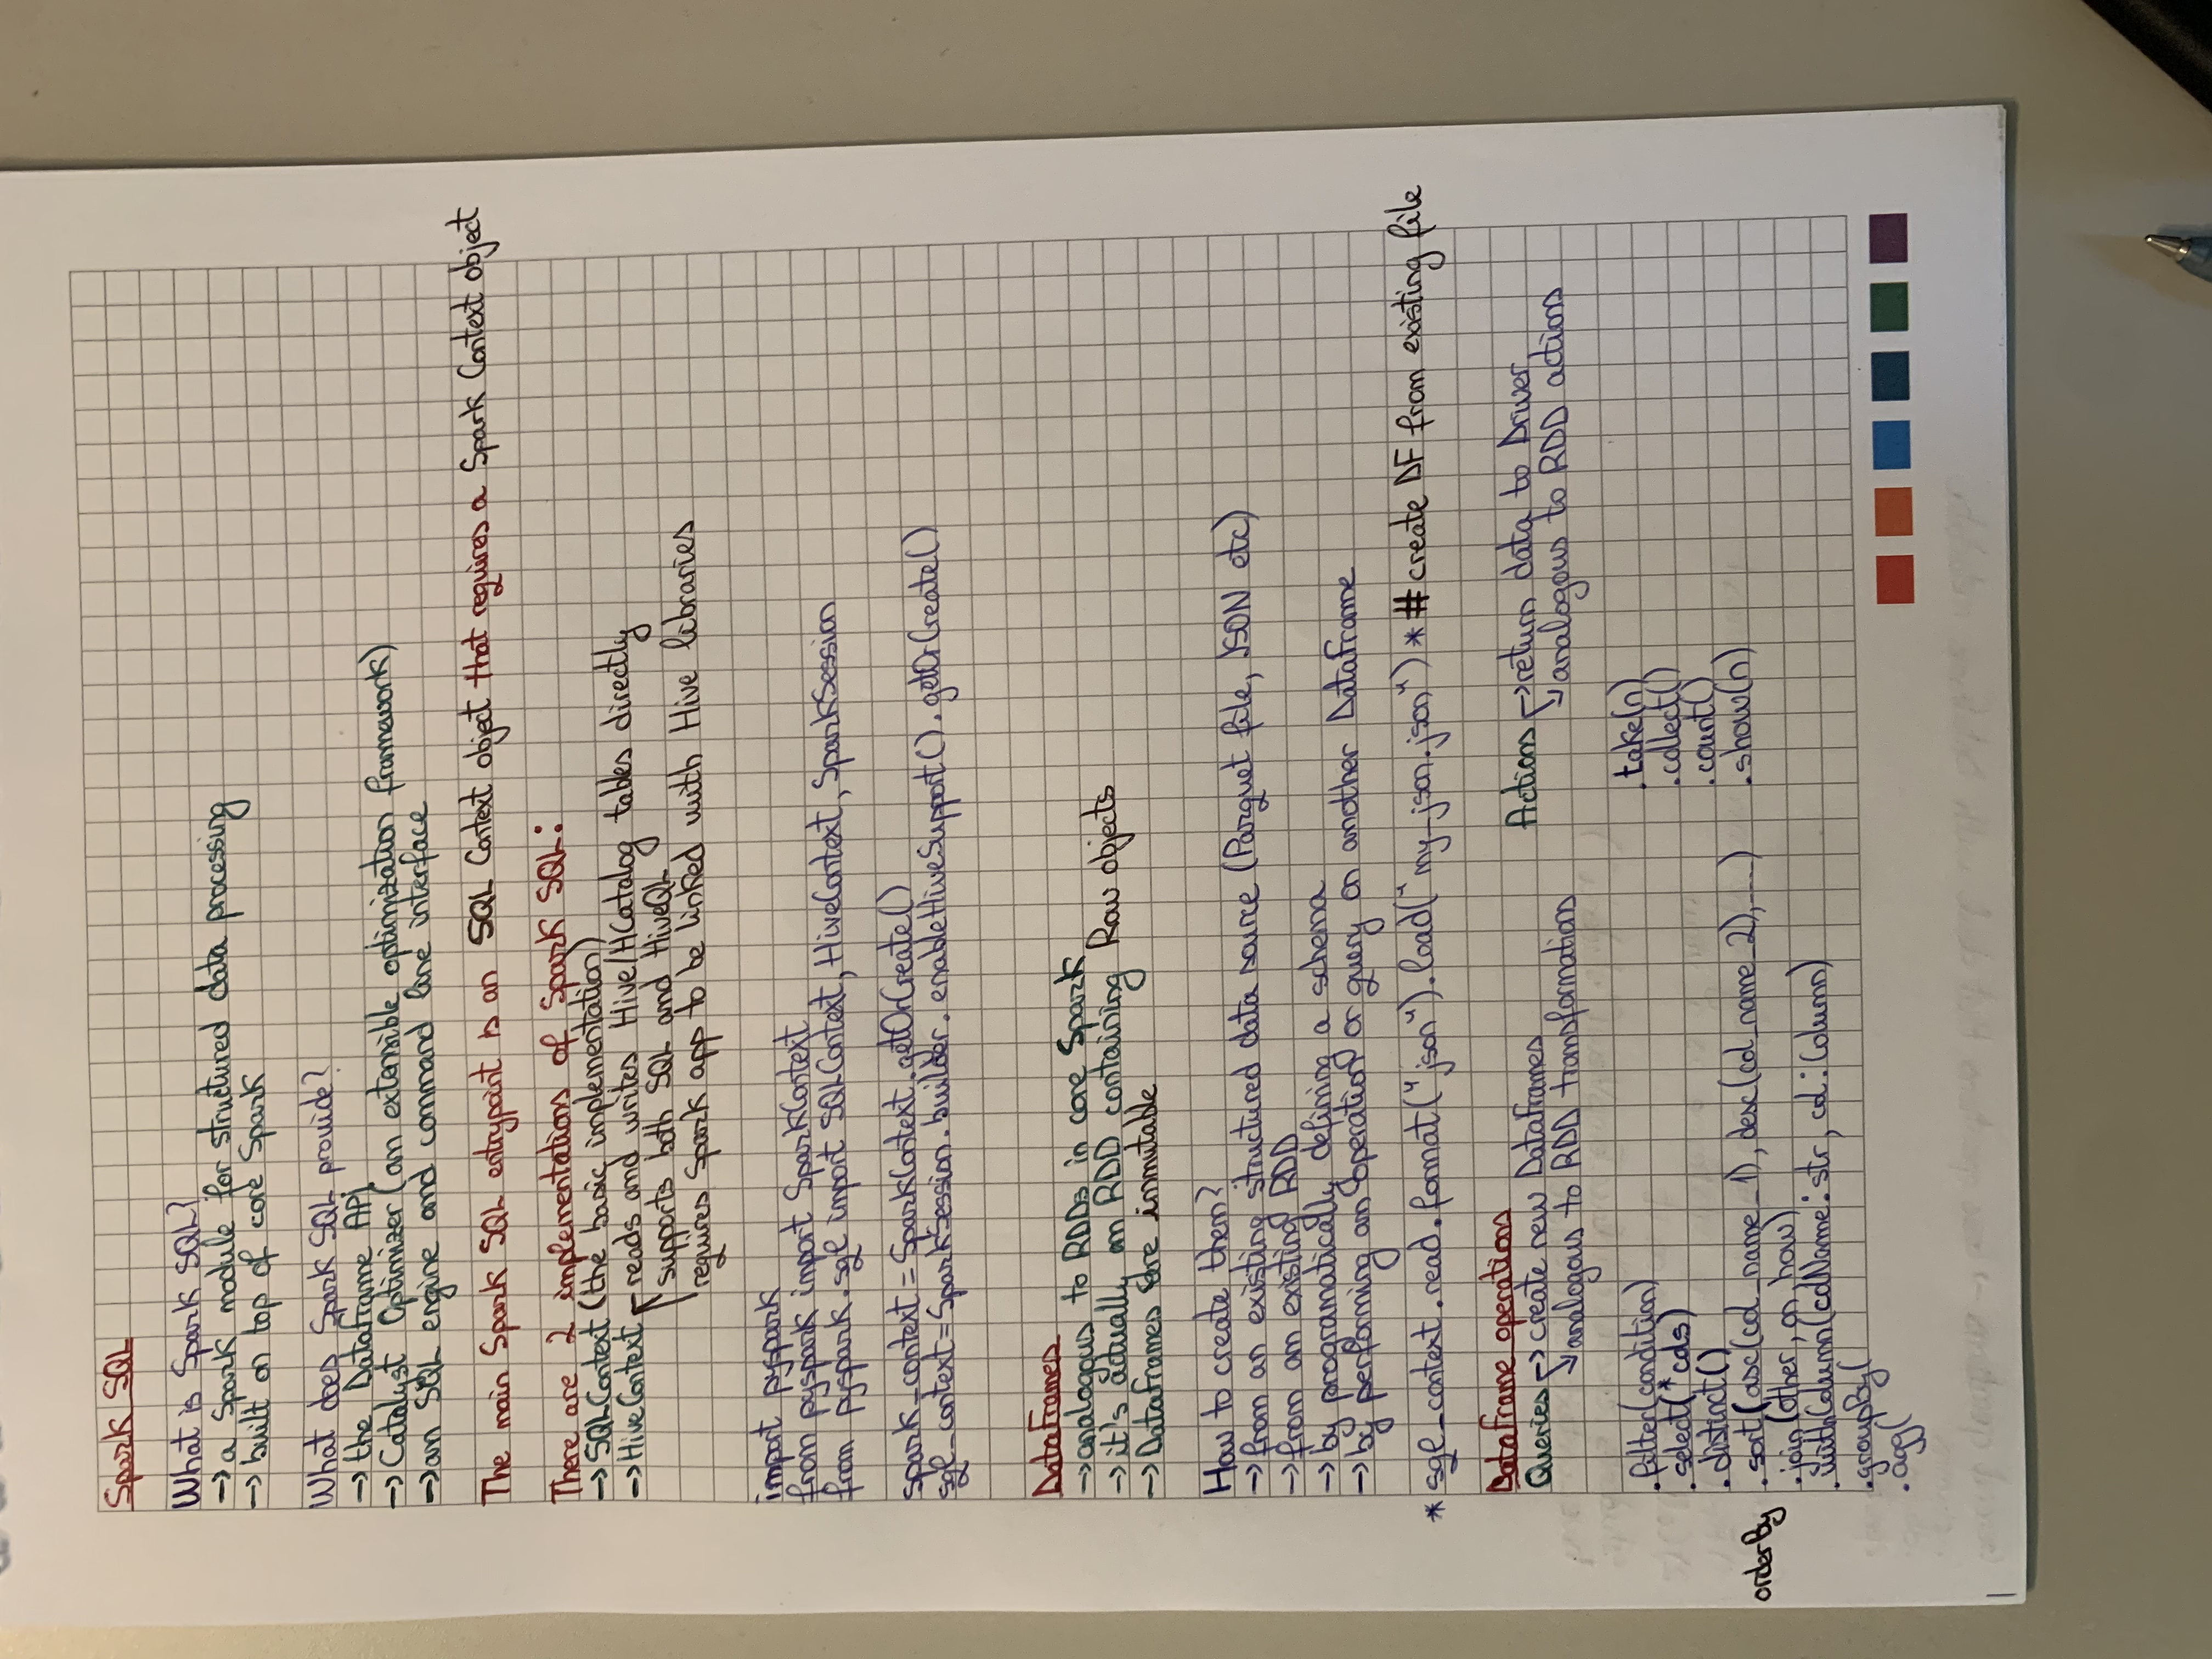 Spark SQL
What is Spark SQL?
→ a Spark module for structured data processing
→ built on top of core Spark
What does Spark SQL provide?
→ the DataFrame API
→ Catalyst Optimizer (an extensible optimization framework)
→ an SQL engine and command line interface
The main Spark SQL entrypoint is an SQL Context object that requires a Spark Context object
There are 2 implementations of Spark SQL:
→ SQLContext (the basic implementation)
→ HiveContext reads and writes Hive/HCatalog tables directly
supports both SQL and HiveQL
requires Spark app to be linked with Hive libraries
import pyspark
from pyspark import SparkContext
from pyspark.sql import SQLContext, HiveContext, SparkSession
spark_context = SparkContext.getOrCreate()
sql_context = SparkSession.builder.enableHiveSupport().getOrCreate()
DataFrames
→ analogous to RDDs in core Spark
→ it's actually an RDD containing Row objects
→ DataFrames are immutable
How to create them?
→ from an existing structured data source (Parquet file, JSON etc)
→ from an existing RDD
→ by programatically defining a schema
→ by performing an operation or query on another DataFrame
* sql_context.read.format("json").load("my_json.json") * # create DF from existing file
DataFrame operations
Queries → create new DataFrames
↘ analogous to RDD transformation
Actions → return data to Driver
↘ analogous to RDD actions
.filter(condition)
.select(*cols)
.distinct()
orderBy .sort(asc(col_name_1), desc(col_name_2), ...)
.join(other, on, how)
.withColumn(colName: str, col: Column)
.groupBy(
.agg(
.take(n)
.collect()
.count()
.show(n)